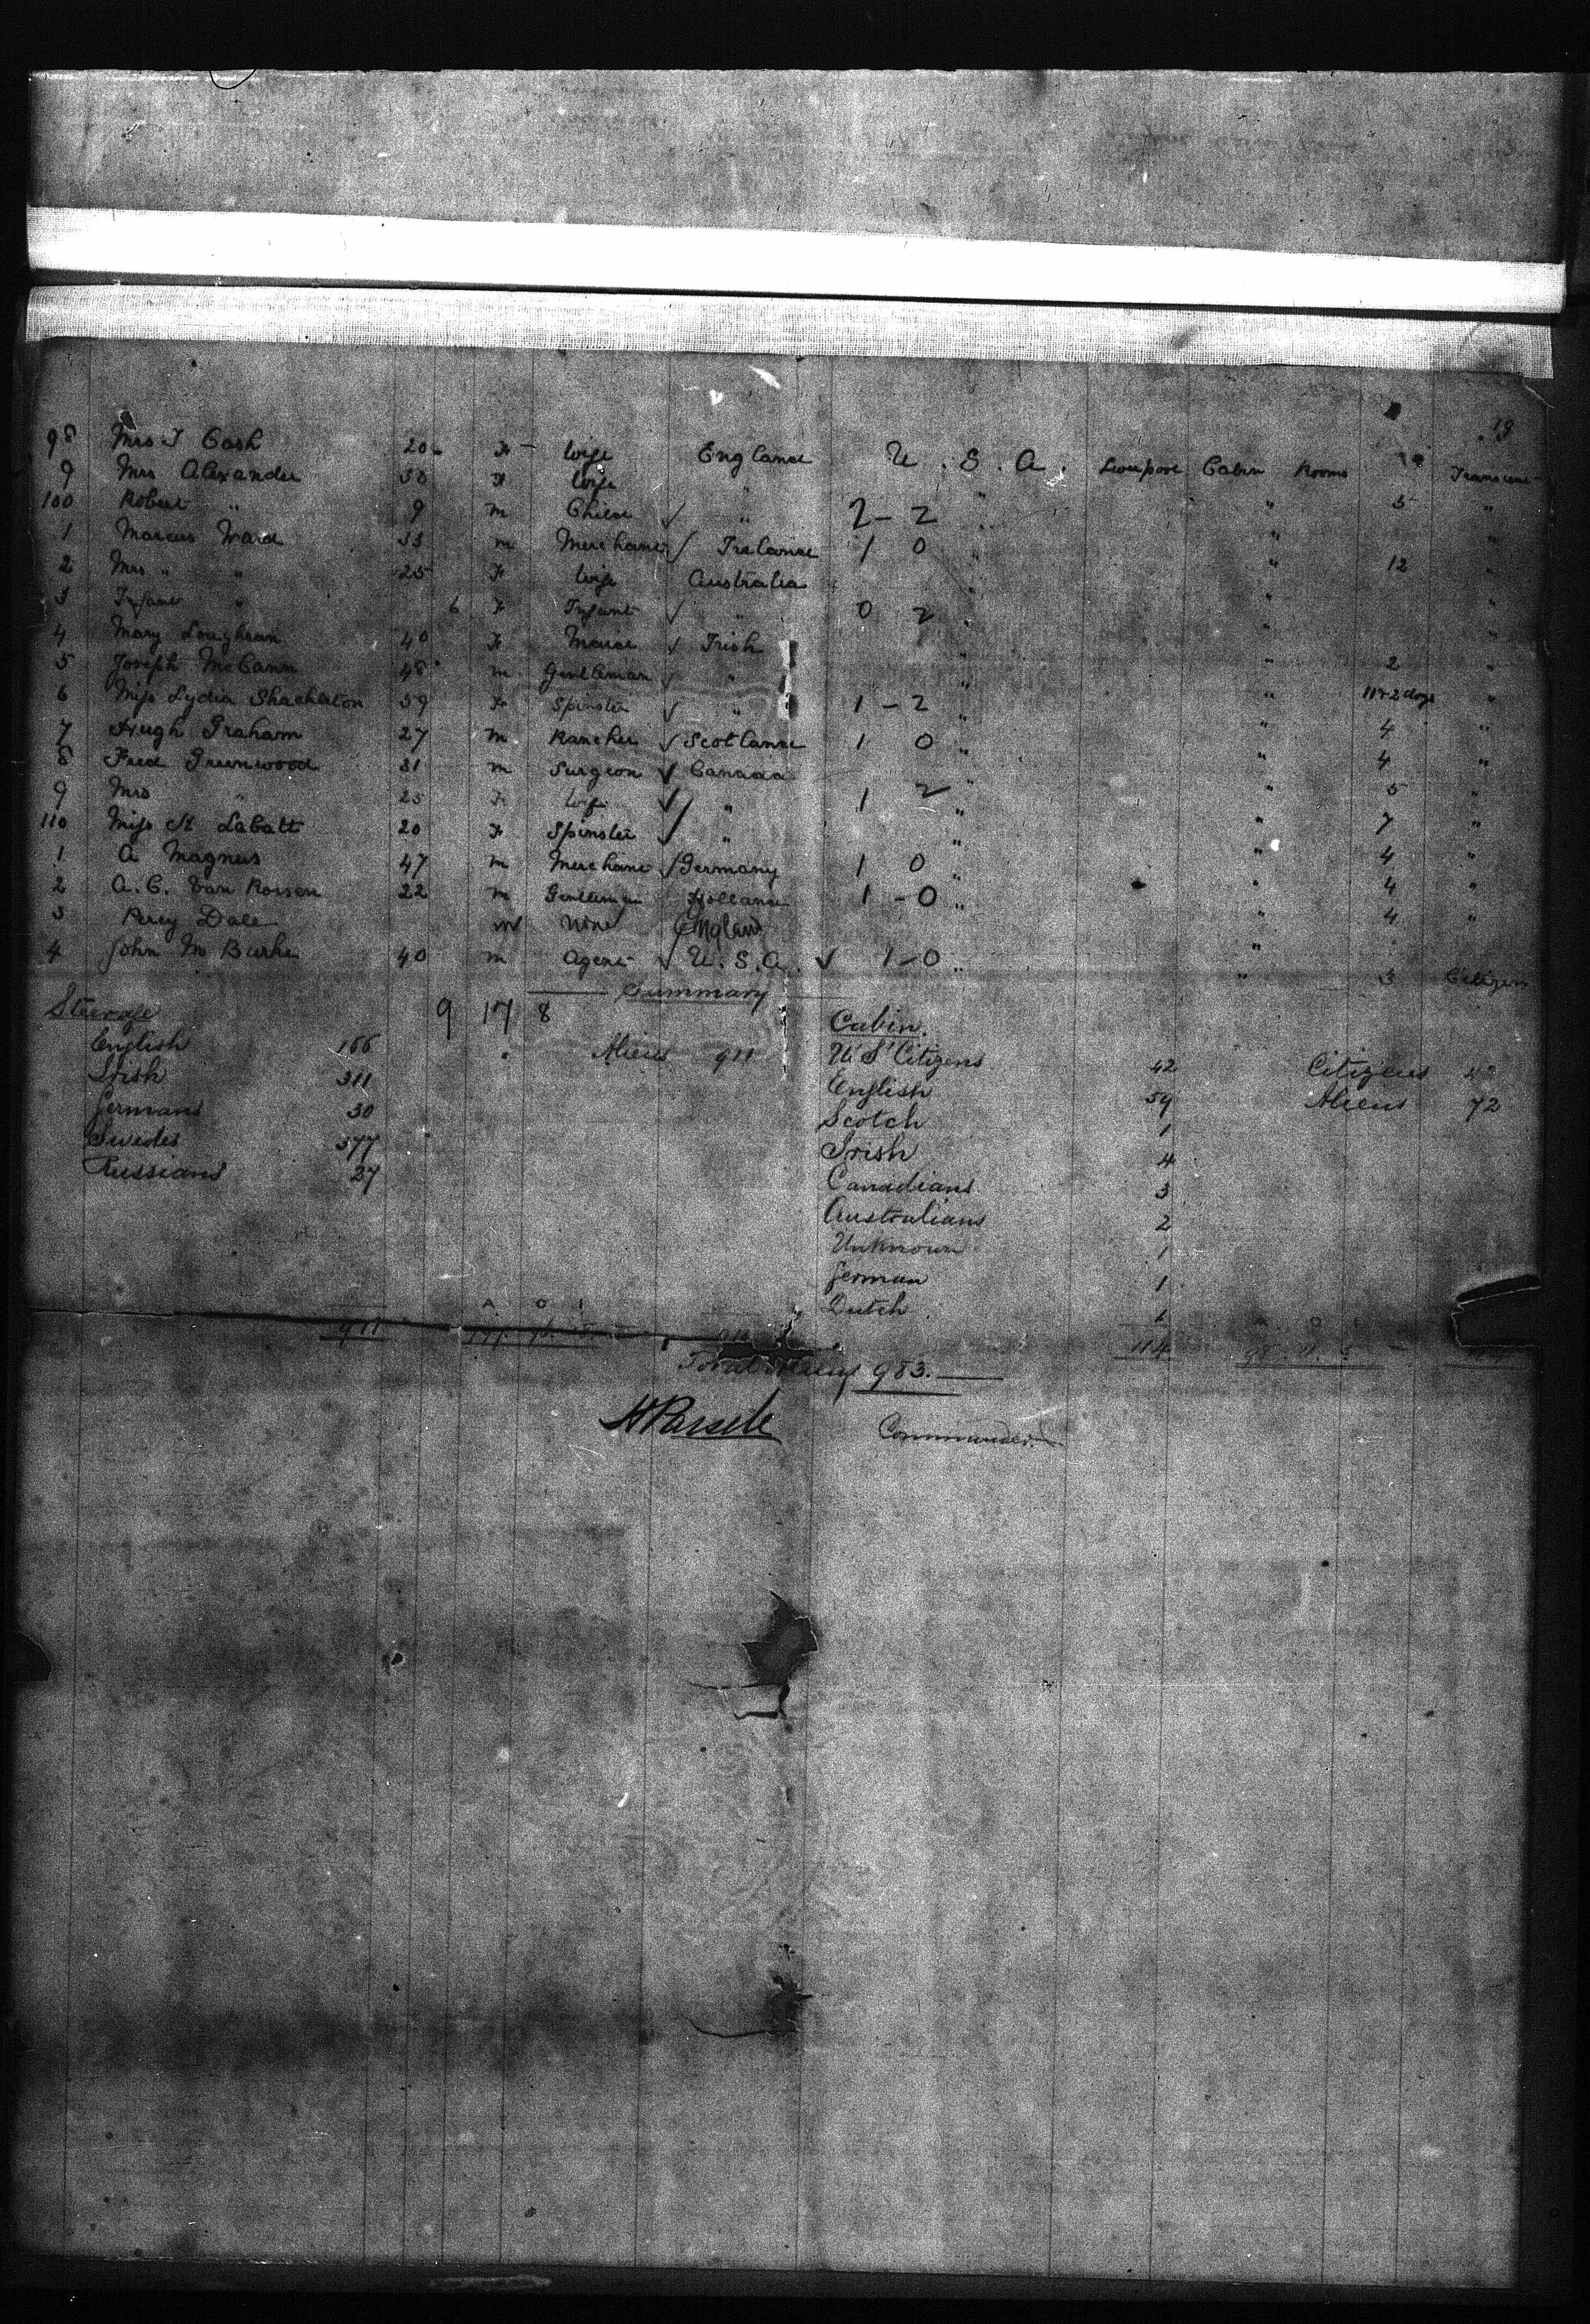 19
98 Mrs J Cash 20 F wife England U. S. A. Liverpool Cabin Rooms Transient
9 Mrs Alexander 30 F wife " " " 5 "
100 Robert " 9 m Child ✓ " 2-2 " "
1 Marcus Ward 33 m Merchant ✓ Ireland 1 0 " " 12 "
2 Mrs " " 25 F wife Australia " " "
3 Infant " 6 F Infant ✓ " 0 2 " " "
4 Mary Loughran 40 F Maid ✓ Irish " " 2 "
5 Joseph McCann 48 m Gentleman ✓ " " " 11+2 dogs "
6 Miss Lydia Shackleton 59 F Spinster ✓ " 1-2 " " 4 "
7 Hugh Graham 27 m Rancher ✓ Scotland 1 0 " " 4 "
8 Fred Greenwood 31 m Surgeon ✓ Canada " " 5 "
9 Mrs " 25 F wife ✓ " 1 2 " " 7 "
110 Miss H Labatt 20 F Spinster ✓ " " " 4 "
1 A Magnus 47 m Merchant ✓ Germany 1 0 " " 4 "
2 A. C. Van Rossen 22 m Gentleman Holland 1-0 " " 4 "
3 Percy Dale m None England "
4 John M Burke 40 m Agent ✓ U. S. A. ✓ 1-0 " " 3 Citizen
Summary
Steerage 9 17 8 Cabin.
English 166 Aliens 911 U.S. Citizens 42 Citizens 42
Irish 311 English 59 Aliens 72
Germans 30 Scotch 1
Swedes 377 Irish 4
Russians 27 Canadians 3
Australians 2
Unknown 1
German 1
Dutch 1
A O I
911 114
Total Aliens 983.
H Parsell Commander.